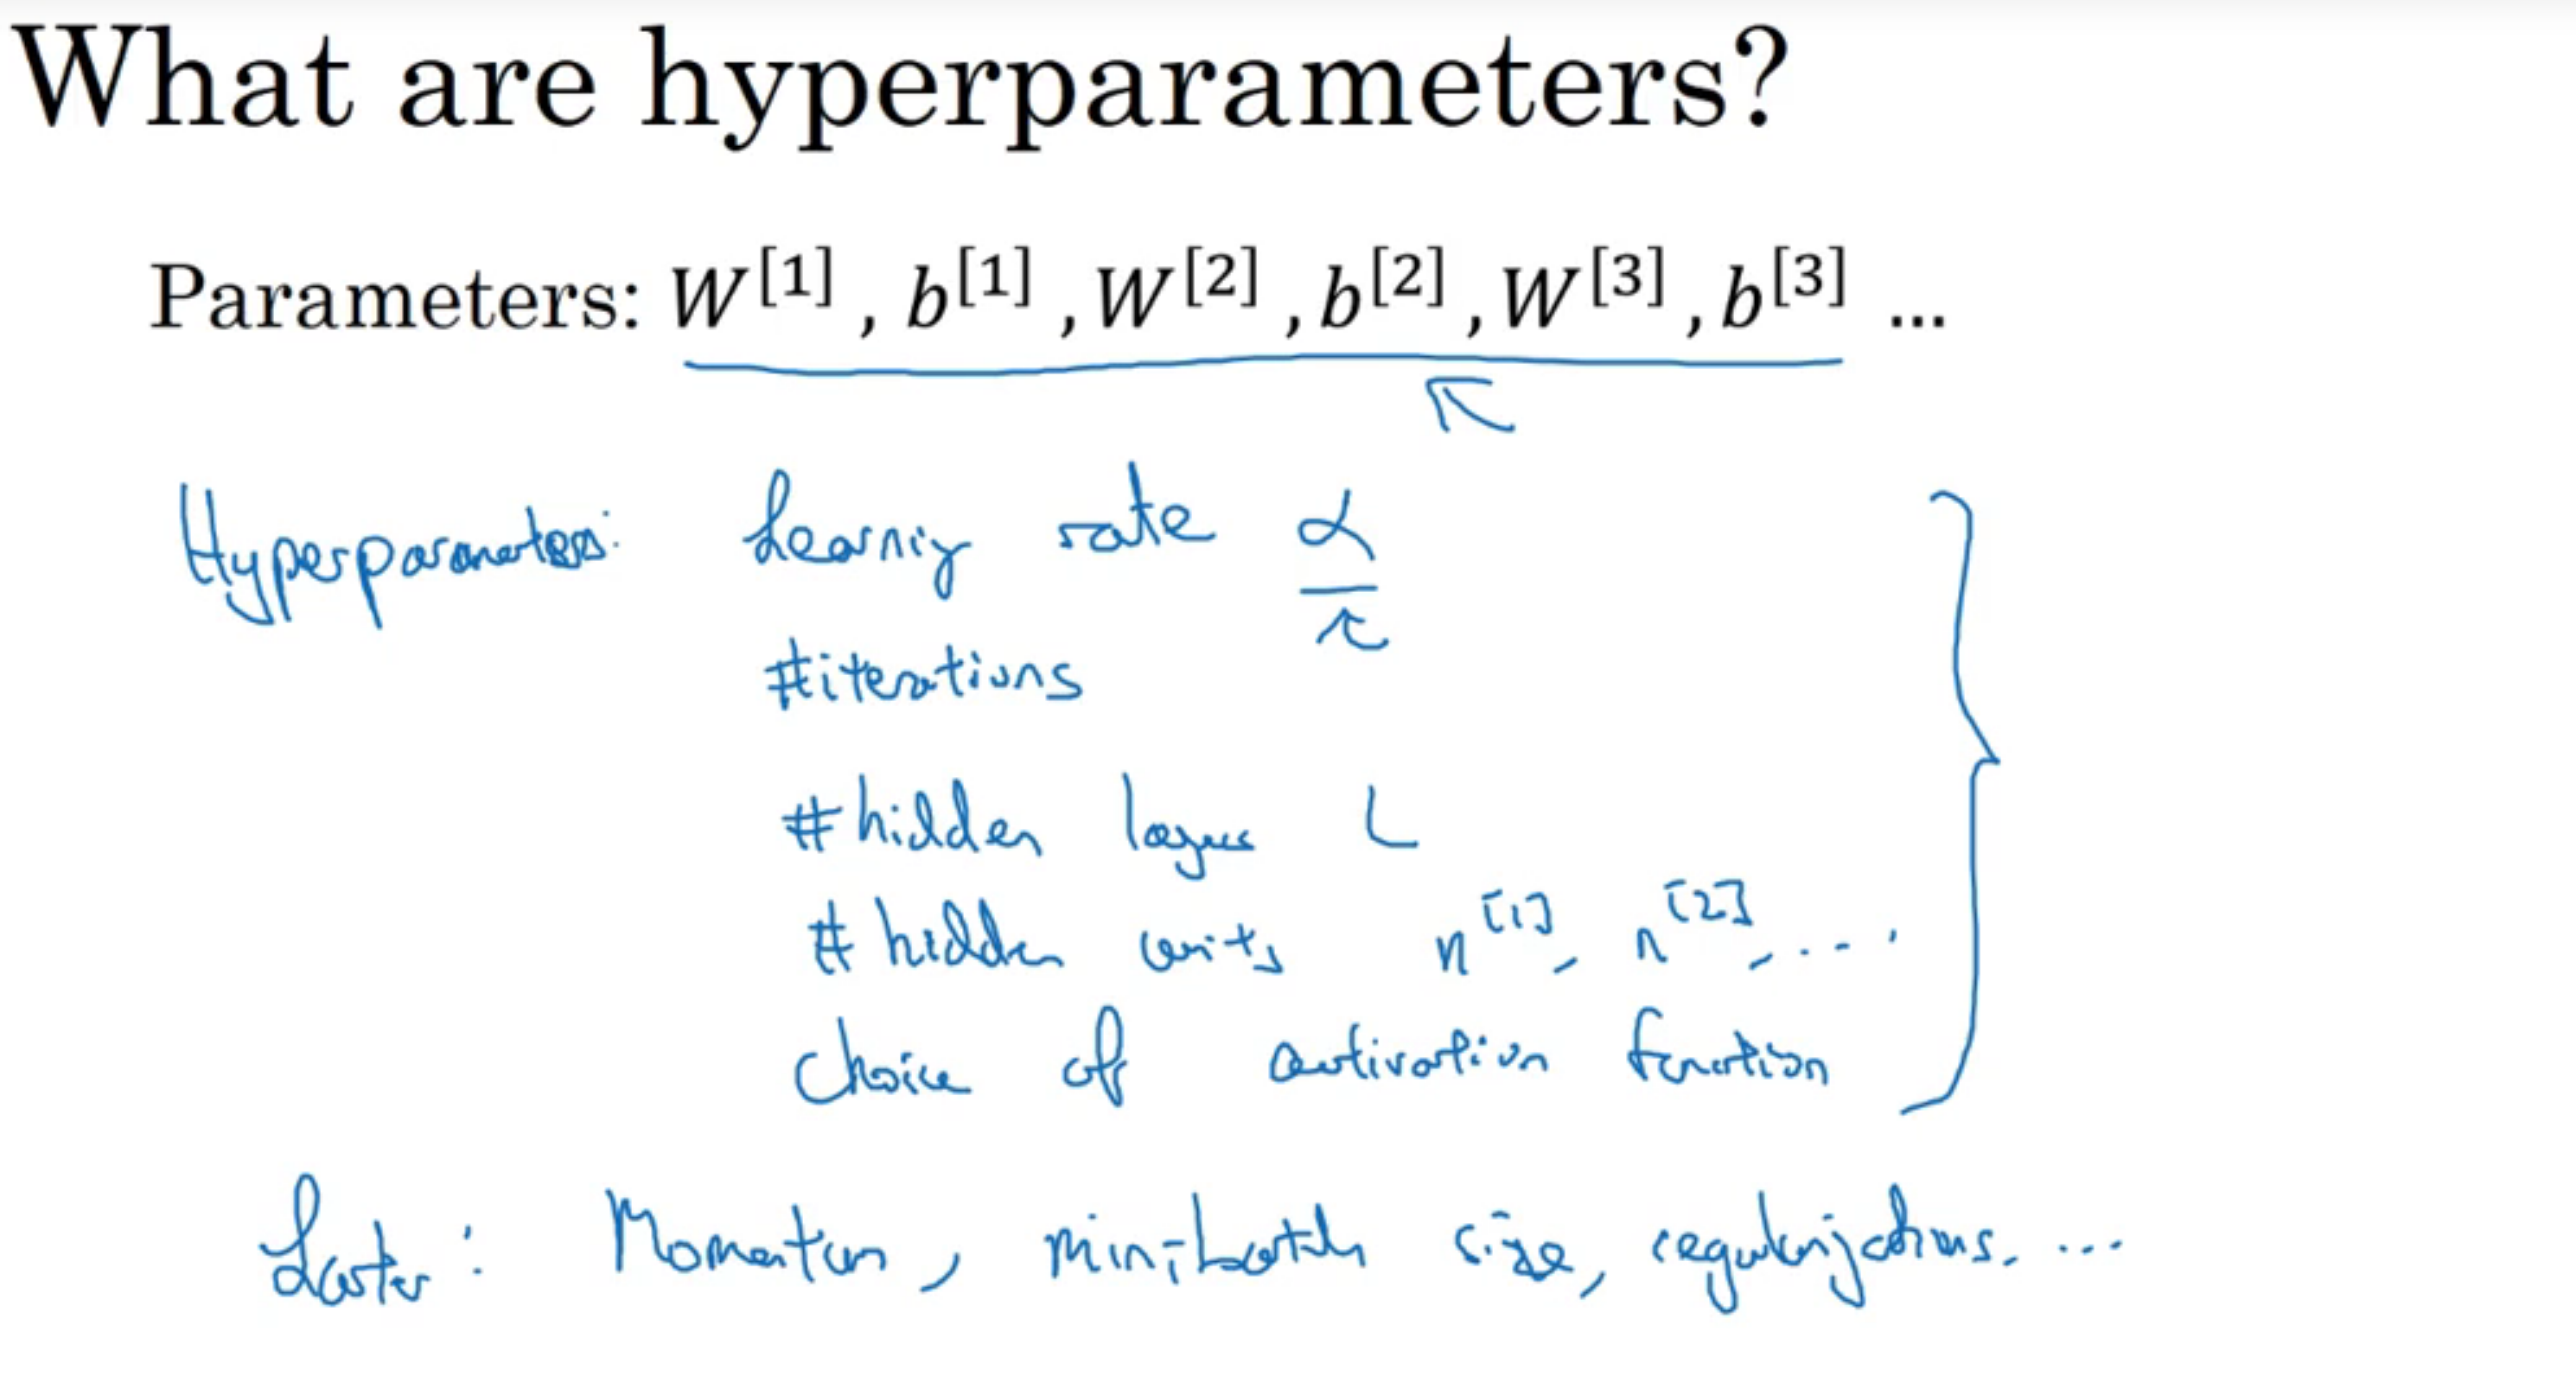 What are hyperparameters?
Parameters: W^[1], b^[1], W^[2], b^[2], W^[3], b^[3] ...
Hyperparameters: Learning rate α
#iterations
#hidden layers L
# hidden units n^[1], n^[2], ....
Choice of activation function
Later: Momentum, mini-batch size, regularizations, ...